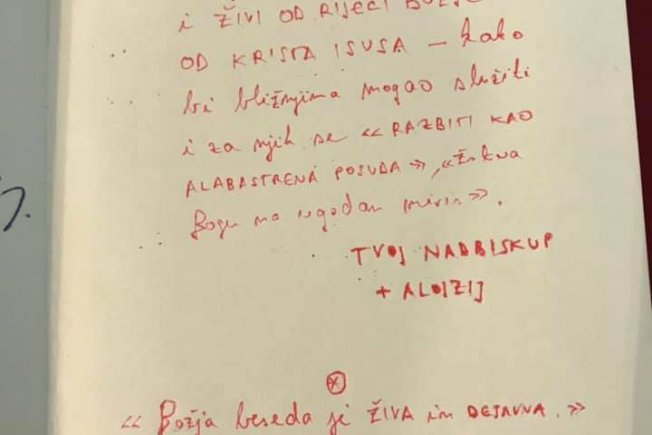 i ŽIVI OD RIJEČI BOŽJE
OD KRISTA ISUSA – kako
bi bližnjima mogao služiti
i za njih se « RAZBITI KAO
ALABASTRENA POSUDA », «žrtva
Bogu na ugodan miris».
TVOJ NADBISKUP
+ ALOJZIJ
« Božja beseda je ŽIVA in DEJAVNA. »